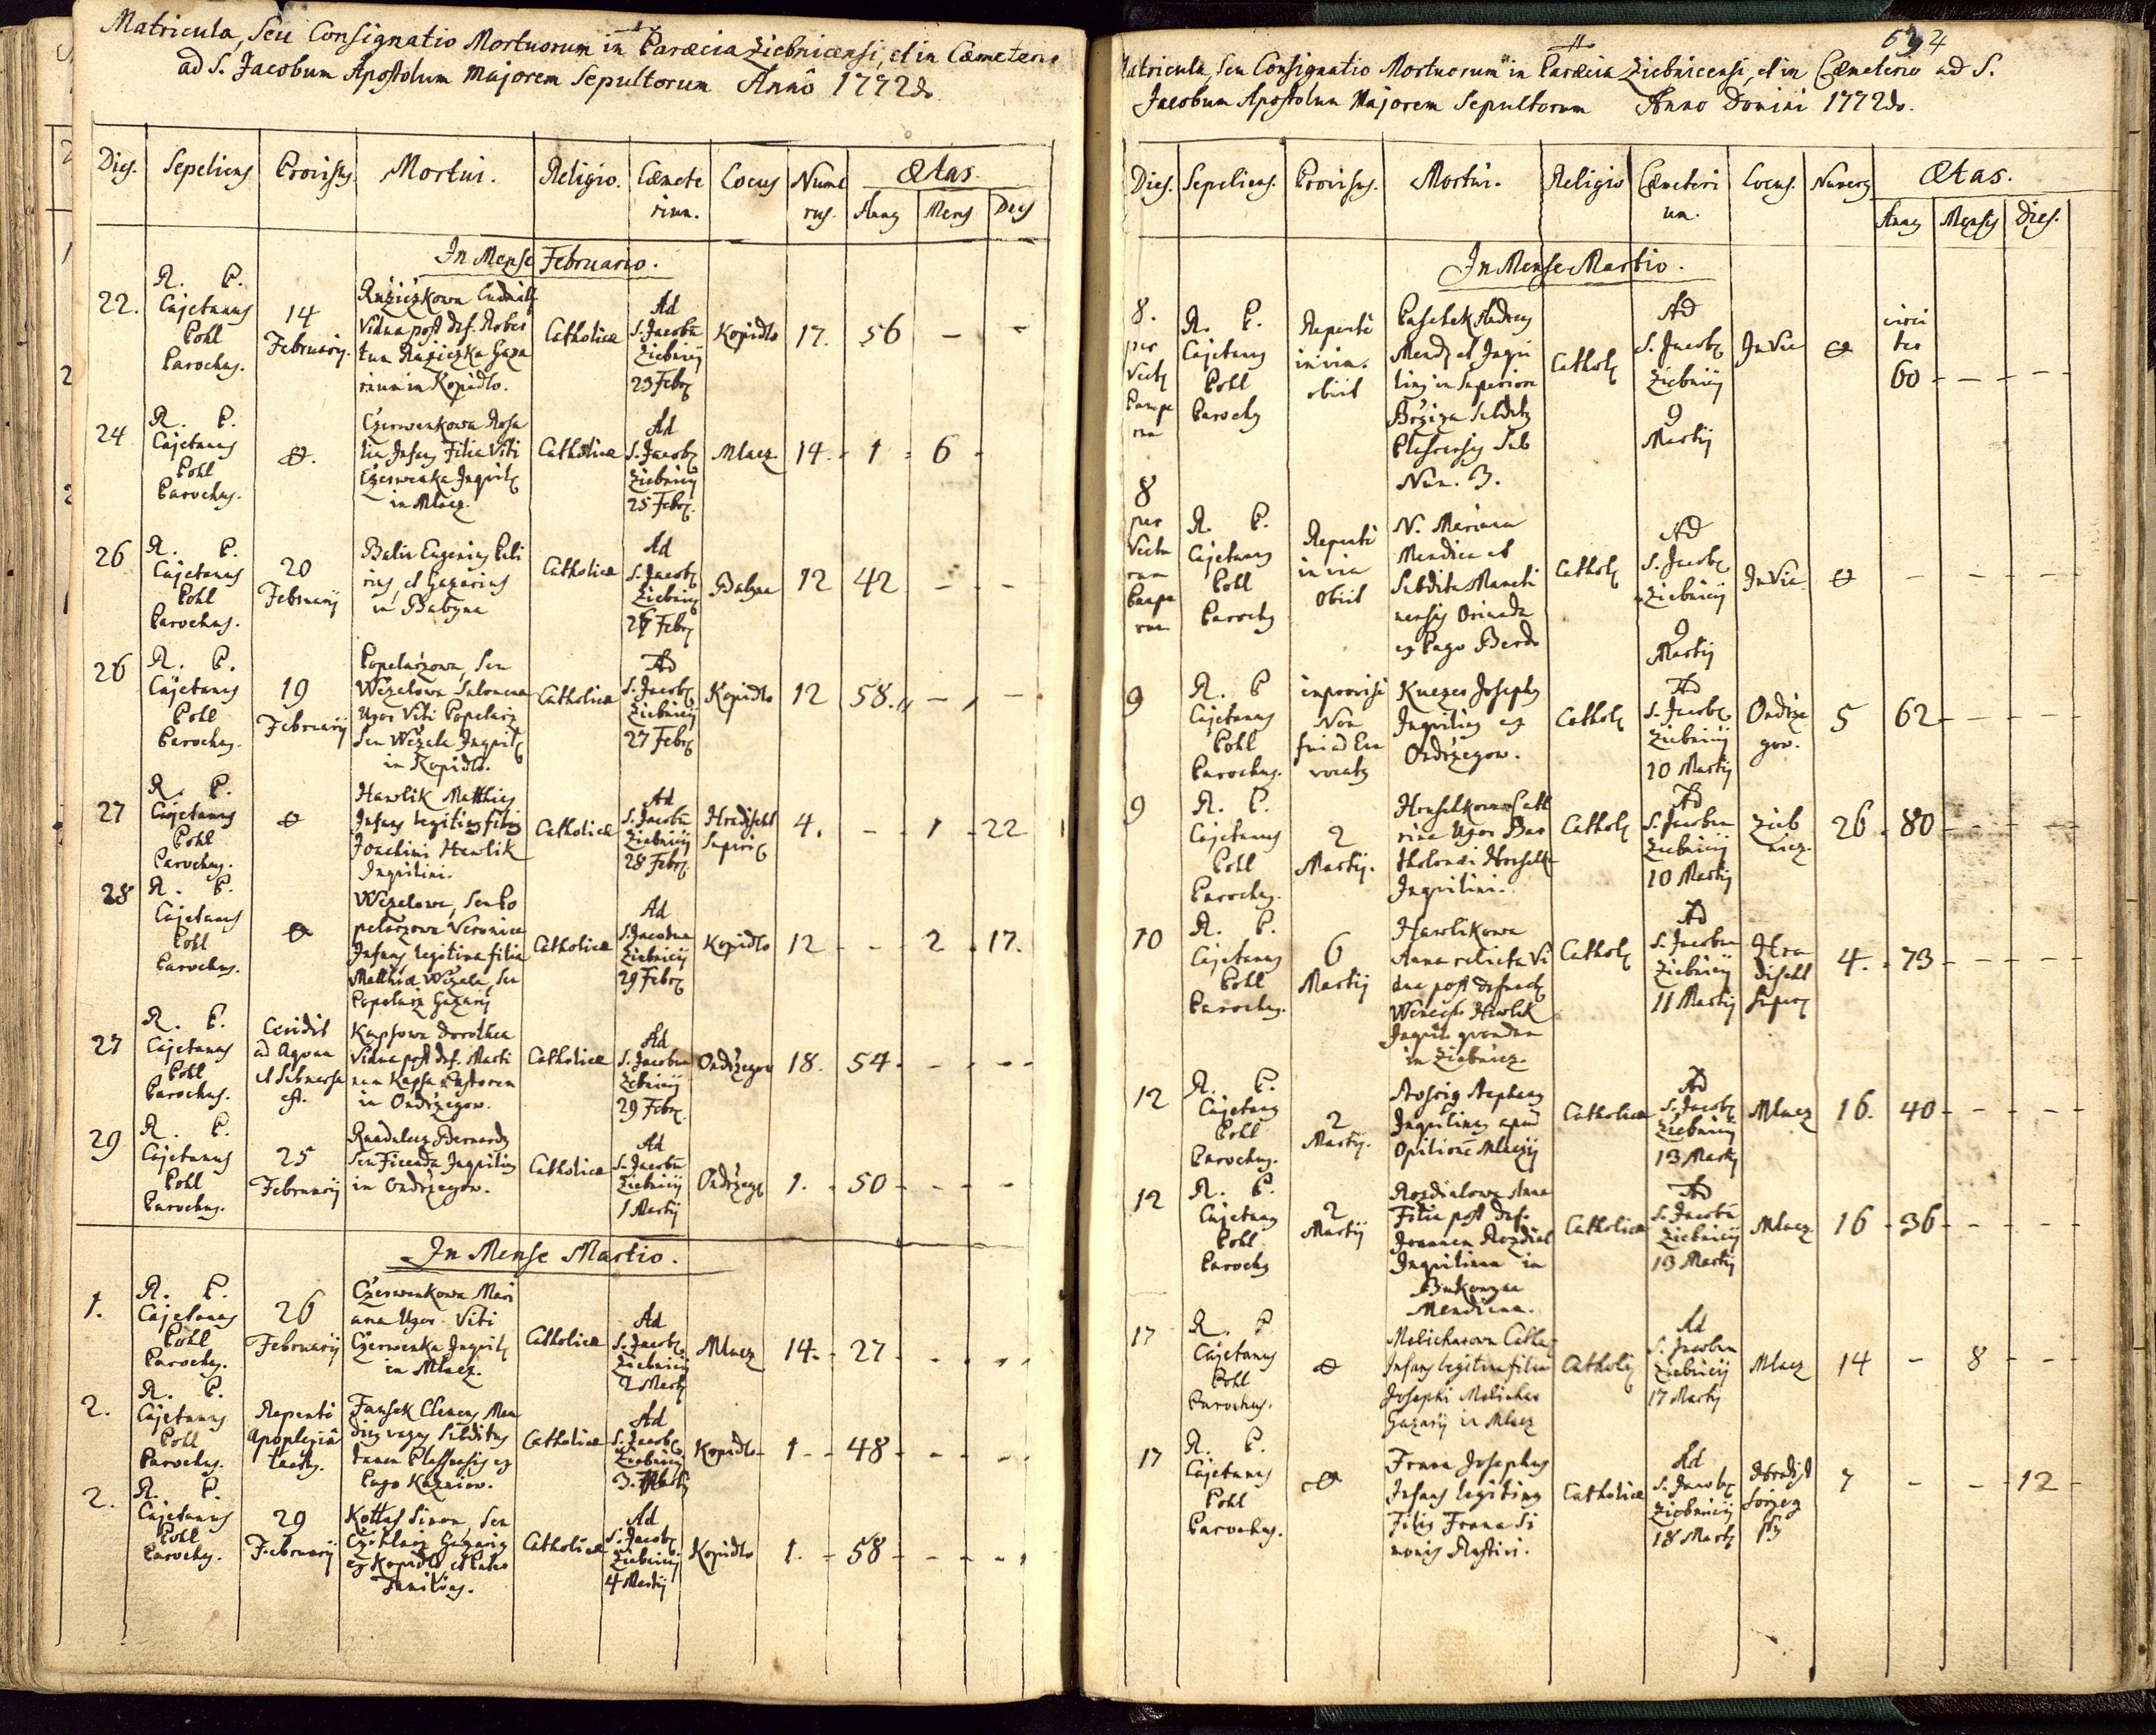 Matricula, Seu Consignatio Mortuorum in Paræcia Ziebnicensi, et in Cæmeterio
ad S. Jacobum Apostolum Majorem Sepultorum Annô 1772do
Dies. Sepeliens Provisus. Mortui. Religio. Cæmete Locus Nume Ætas.
rium. rus. Annus Mens Dies
In Mense Februario.
22.
R. P.
Cajetanus
Pohl
Parochus.
14
Februarij.
Ružičzkowa
Vidua post def.
tum Ružiczka
in Kopidlo.
Catholica
Ad
S. Jacobū
Ziebnicij
23 Febr.
Kopidlo 17. 56 – –
24
R. P.
Cajetanus
Pohl
Parochus.
Ɵ.
Czerwenkowa Rosa
lia Infans Filia Viti
Czerwenka Inquil
in Mlacz.
Catholica
Ad
S. Jacob
Ziebnicij
25 Febr.
Mlacz 14. 1 6
26
R. P.
Cajetanus
Pohl
Parochus.
20
Februarij
Eugenius
et Gazarius
in Babyna
Catholica
Ad
S. Jacob
Ziebnicij
27 Febr
Babyna 12 42 – –
26
R. P.
Cajetanus
Pohl
Parochus.
19
Februarij
Popelařzowa, Seu
Wězelowa Salomena
Uxor Viti Popelarz
Seu Wězela Inquil
in Kopidlo.
Catholica
Ad
S. Jacob
Ziebnicij
27 Febr
Kopidlo 12 58. – –
27
R. P.
Cajetanus
Pohl
Parochus.
Ɵ
Hawlik Matthias
Infans legitimus filius
Joachimi Hawlik
Inquilini.
Catholica
Ad
S. Jacobū
Ziebnicij
28 Febr.
Hradischt
Superi
4. – 1 22
28
R. P.
Cajetanus
Pohl
Parochus.
Ɵ
Wězelowa, Seu Po
pelařzowa Veronica
Infans legitima filia
Matthiæ Wězela, Seu
Popelarz Gazarij
Catholica
Ad
S. Jacobum
Ziebnicij
29 Febr
Kopidlo 12 – 2 17.
27
R. P.
Cajetanus
Pohl
Parochus.
Cecidit
ad Aquam
et Submersa
est.
Kapsowa Dorothea
Vidua post def. Marti
num Kapsa Pastorem
in Ondřzegow.
Catholica
Ad
S. Jacobum
Ziebnicij
29 Febr.
Ondřzegow 18. 54 – – –
29
R. P.
Cajetanus
Pohl
Parochus.
25
Februarij
Bernardus
Seu Inquilin
in Ondřzegow.
Catholica
Ad
S. Jacobū
Ziebnicij
1 Martij
Ondřzeg 1. 50 – – –
In Mense Martio.
1.
R. P.
Cajetanus
Pohl
Parochus.
26
Februarij
Czerwenkowa Mari
ana Uxor Viti
Czerwenka Inquil
in Mlacz.
Catholica
Ad
S. Jacob
Ziebnicij
2 Martij
Mlacz 14. 27
2.
R. P.
Cajetanus
Pohl
Parochus.
Repentè
Apoplexiâ
tactus.
Fansek Clemens Men
dicus vagus Subditus
tamen Plassensis ex
Pago Kazniow.
Catholica
Ad
S. Jacob
Ziebnicij
3. Martij
Kopidlo 1 48
2.
R. P.
Cajetanus
Pohl
Parochus.
29
Februarij
Kottas Simon, Seu
Gazarius
ex Kopidlo et Pater
Familias.
Catholica
Ad
S. Jacob
Ziebnicij
4 Martij
Kopidlo 1. 58
Matricula, Seu Consignatio Mortuorum in Paræcia Ziebnicensi, et in Cæmeterio ad S.
Jacobum Apostolum Majorem Sepultorum Anno Domini 1772do.
Dies. Sepeliens. Provisus. Mortui. Religio Cæmeteri Locus. Numerus Ætas.
um. Annus Mensis Dies.
In Mense Martio.
8.
per
Vect
Paupe
rum
R. P.
Cajetanus
Pohl
Parochus
Repentè
in via.
obiit
Paschek Andreas
Mend et Inqui
linus in Superiore
Břziza Subditus
Plassensis Sub
Num. 3.
Cathol
Ad
S. Jacob
Ziebnicij
9
Martij
In Via Ɵ
circi
ter
60 – – –
8
per
Vectu
ram
Paupe
rum
R. P.
Cajetanus
Pohl
Parochus
Repentè
in via
obiit
N. Mariana
Mendica et
Subdita Maneti
nensis Oriunda
ex Pago
Cathol
Ad
S. Jacob
Ziebnicij
9
Martij
In Via Ɵ – – –
9
R. P
Cajetanus
Pohl
Parochus.
improvisè
Non
fui ad Eum
vocatus
Knezes Josephus
Inquilinus ex
Ondřzegow.
Cathol
Ad
S. Jacob
Ziebnicij
10 Martij
Ondřze
gow.
5 62 – – –
9
R. P.
Cajetanus
Pohl
Parochus.
2
Martij.
Catha
rina Uxor Bar
tholomæi
Inquilini.
Cathol
Ad
S. Jacobum
Ziebnicij
10 Martij
Zieb
nicz
26 80 – – –
10
R. P.
Cajetanus
Pohl
Parochus.
6
Martij
Hawlikowa
Anna relicta Vi
dua post defunct
Hawlik
Inquil. quondam
in Ziebnicz.
Cathol
Ad
S. Jacobum
Ziebnicij
11 Martij
Hra
discht
Super
4. 73 – – –
12
R. P.
Cajetanus
Pohl
Parochus.
2
Martij.
Stephanus
Inquilinus apud
Opilionē Mlaczij
Catholica
Ad
S. Jacob
Ziebnicij
13 Martij
Mlacz 16. 40 – – –
12
R. P.
Cajetanus
Pohl
Parochus
2
Martij
Rozdialowa Anna
Filia post def.
Joannem Rozdial
Inquilinum in
Bukowyna
Mendicam.
Catholica
Ad
S. Jacobū
Ziebnicij
13 Martij
Mlacz 16 36 – – –
17
R. P.
Cajetanus
Pohl
Parochus.
Ɵ
Melicharowa Catha
Infans legitima filia
Josephi Melichar
Gazarij in Mlacz
Catholi
Ad
S. Jacobum
Ziebnicij
17 Martij
Mlacz 14 – 8 – –
17
R. P.
Cajetanus
Pohl
Parochus.
Ɵ
Frana Josephus
Infans legitimus
Filius Frana Si
monis Rustici.
Catholica
Ad
S. Jacob
Ziebnicij
18 Martij
Hradist
7 – – 12